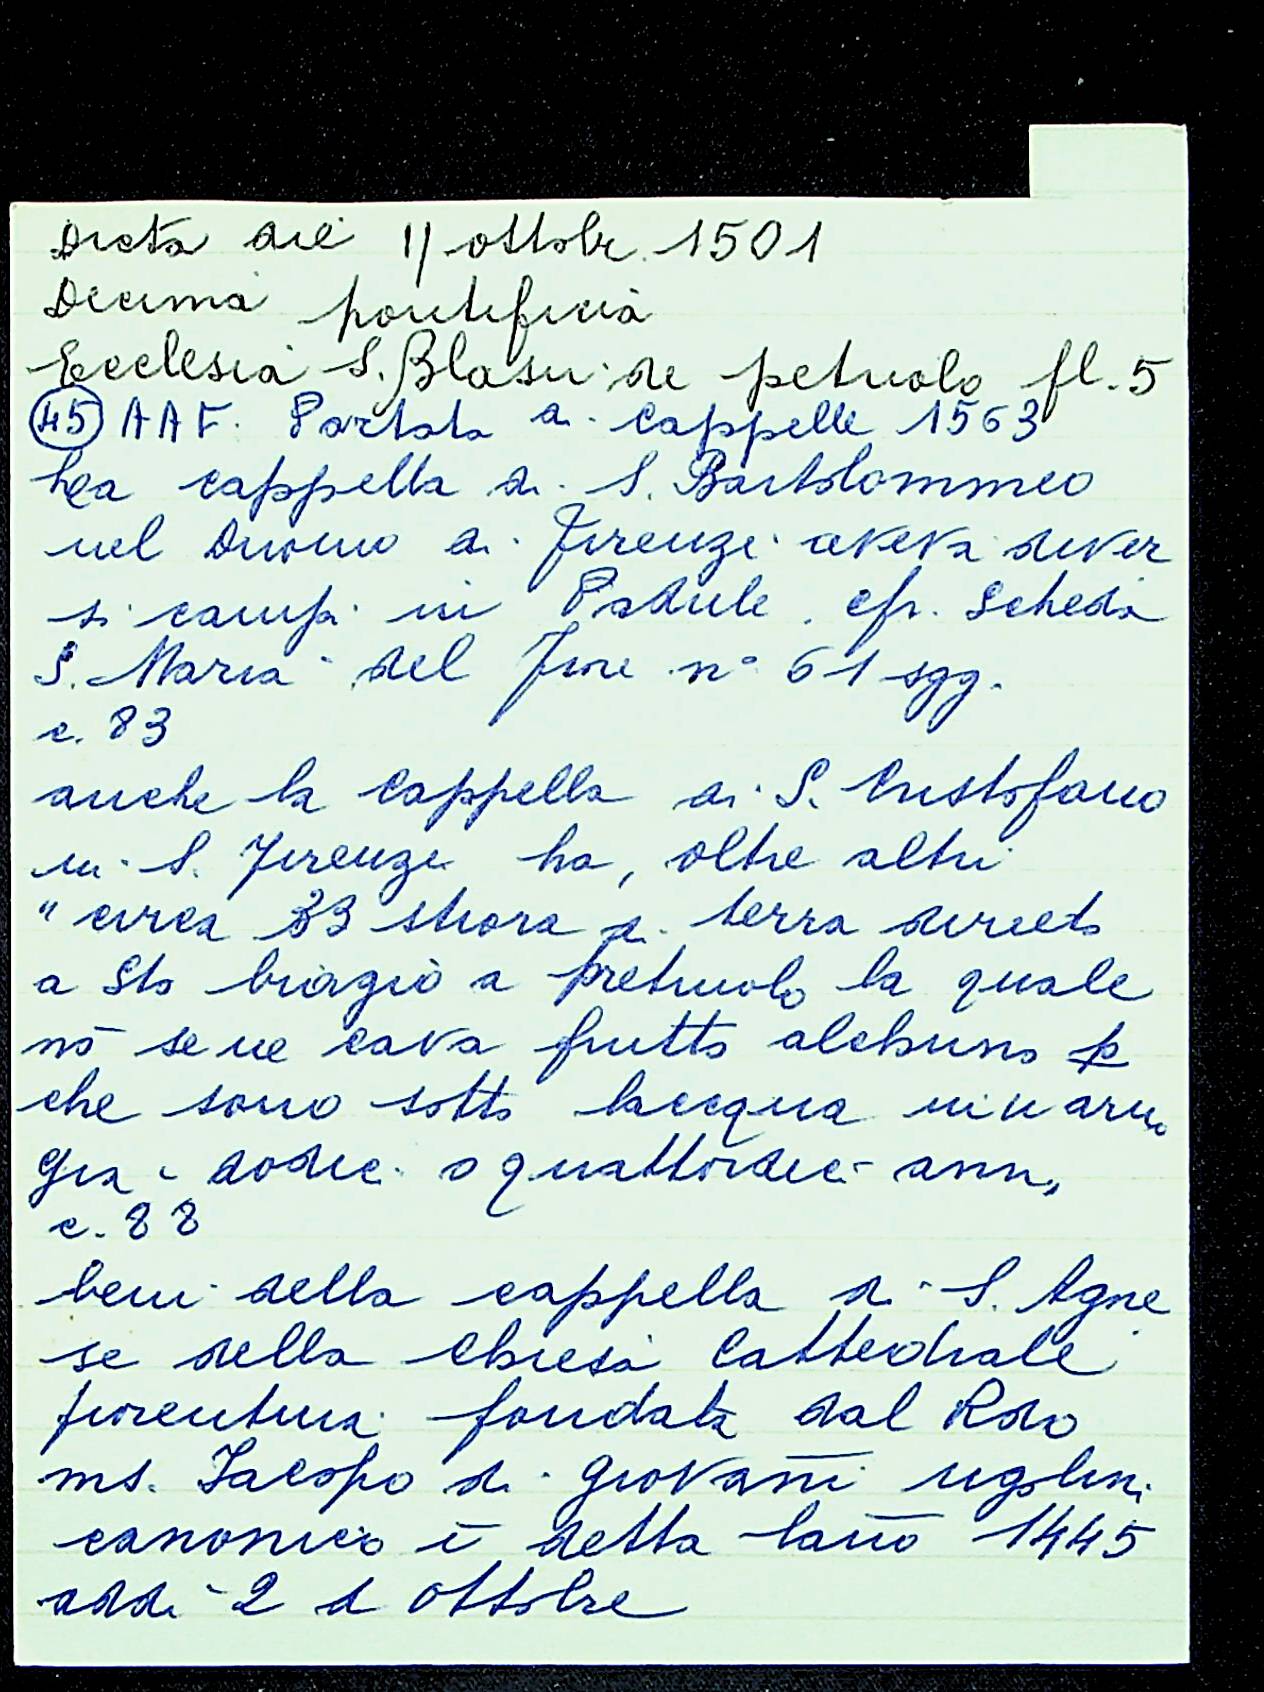 Dicta die 11 ottobr. 1501
Decima pontificia
Ecclesia S. Blasii de petriolo fl. 5
(45) AAF. Portata di cappelle 1563
La cappella di S. Bartolommeo
nel Duomo di Firenze aveva diver
si campi in Padule. cfr. scheda
S. Maria del Fiore n° 61 sgg.
c. 83
anche la cappella di S. Cristofano
in S. Firenze ha, oltre altri
"circa 33 stiora di terra
a Sto biagio a pretriolo la quale
nō se ne cava frutto alchuno p
che sono sotto lacqua
gia dodici o quattordici anni
c. 88
beni della cappella di S. Agne
se della chiesa Cattedrale
fiorentina fondata dal Rdo
ms. Iacopo di giovāni ugolini
canonico ī detta lāno 1445
addi 2 d ottobre